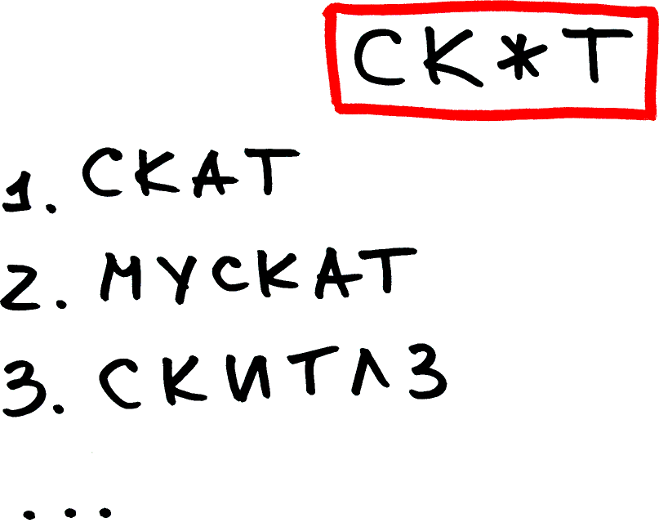 СК*Т
1. СКАТ
2. МУСКАТ
3. СКИТЛЗ
...